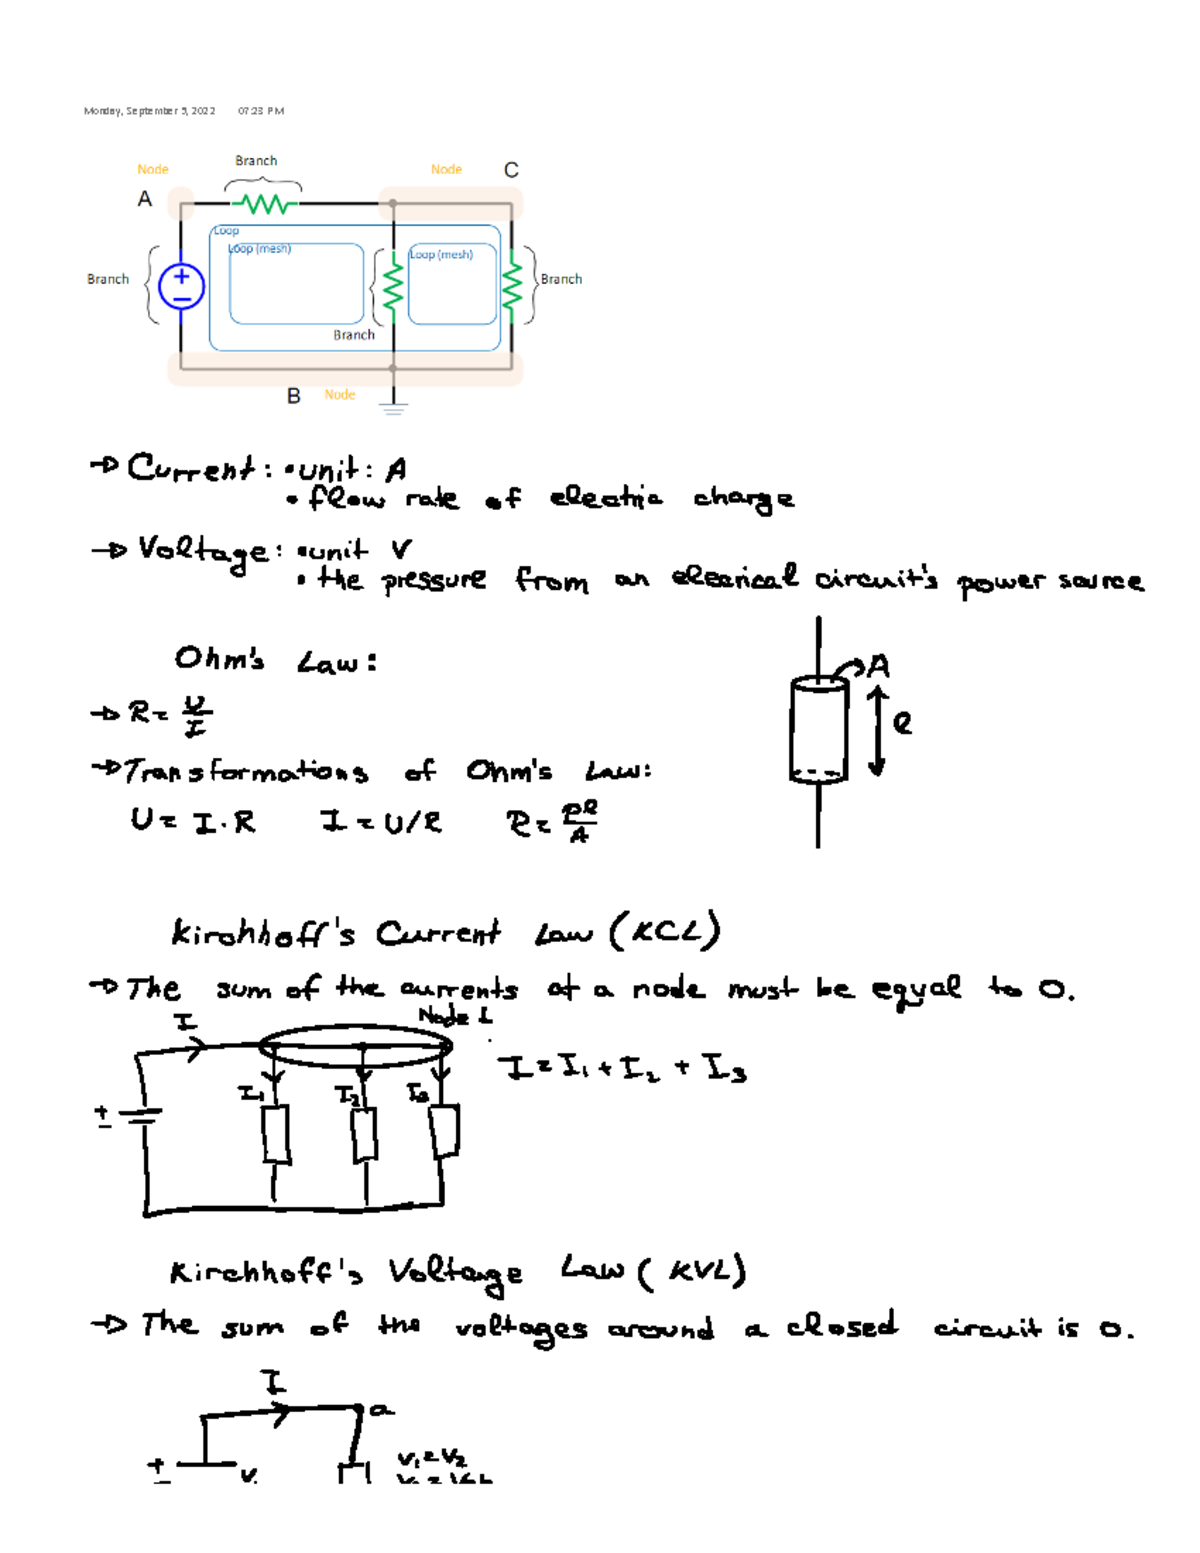 Monday, September 5, 2022 07:23 PM
Branch
Node
Node
C
A
Loop
Loop (mesh)
Loop (mesh)
Branch
+
−
Branch
Branch
B
Node
→ Current: • unit: A
• flow rate of electric charge
→ Voltage: • unit V
• the pressure from an elecrical circuit's power source
Ohm's Law:
A
→ R = U/I
l
→ Transformations of Ohm's Law:
U = I · R I = U/R R = ρl/A
Kirchhoff's Current Law (KCL)
→ The sum of the currents at a node must be equal to 0.
I
Node 1
I = I₁ + I₂ + I₃
I₁ I₂ I₃
+
−
Kirchhoff's Voltage Law (KVL)
→ The sum of the voltages around a closed circuit is 0.
I
a
V₁ = V₂
+
−
V₁